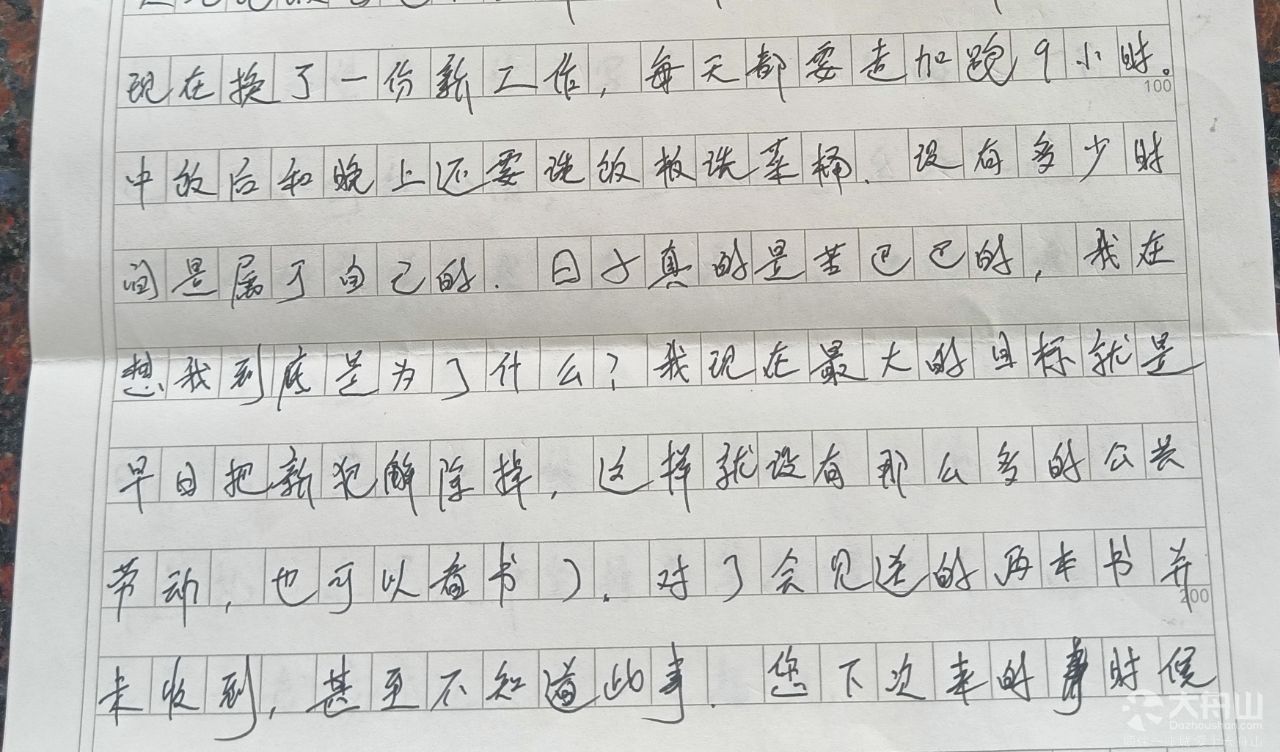 现在换了一份新工作，每天都要走加跑9小时。
100
中饭后和晚上还要洗饭板洗菜桶.没有多少时
间是属于自己的.日子真的是苦巴巴的，我在
想我到底是为了什么？我现在最大的目标就是
早日把新犯解除掉，这样就没有那么多的公共
劳动，也可以看书了.对了会见送的两本书并
200
未收到，甚至不知道此事.您下次来的时候
大舟山
Dazhoushan.com